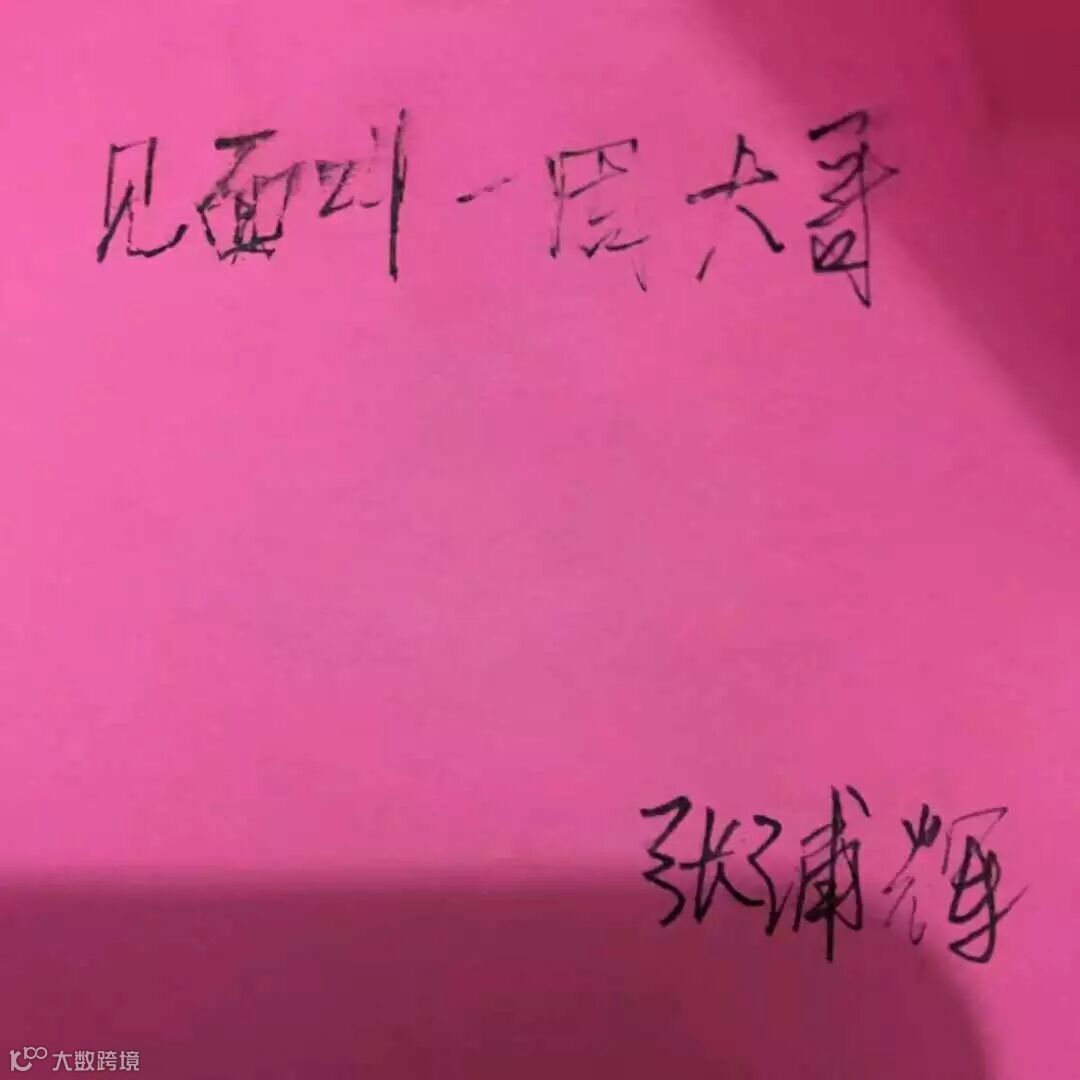 见面叫一屌大哥
张浦辉
大数跨境